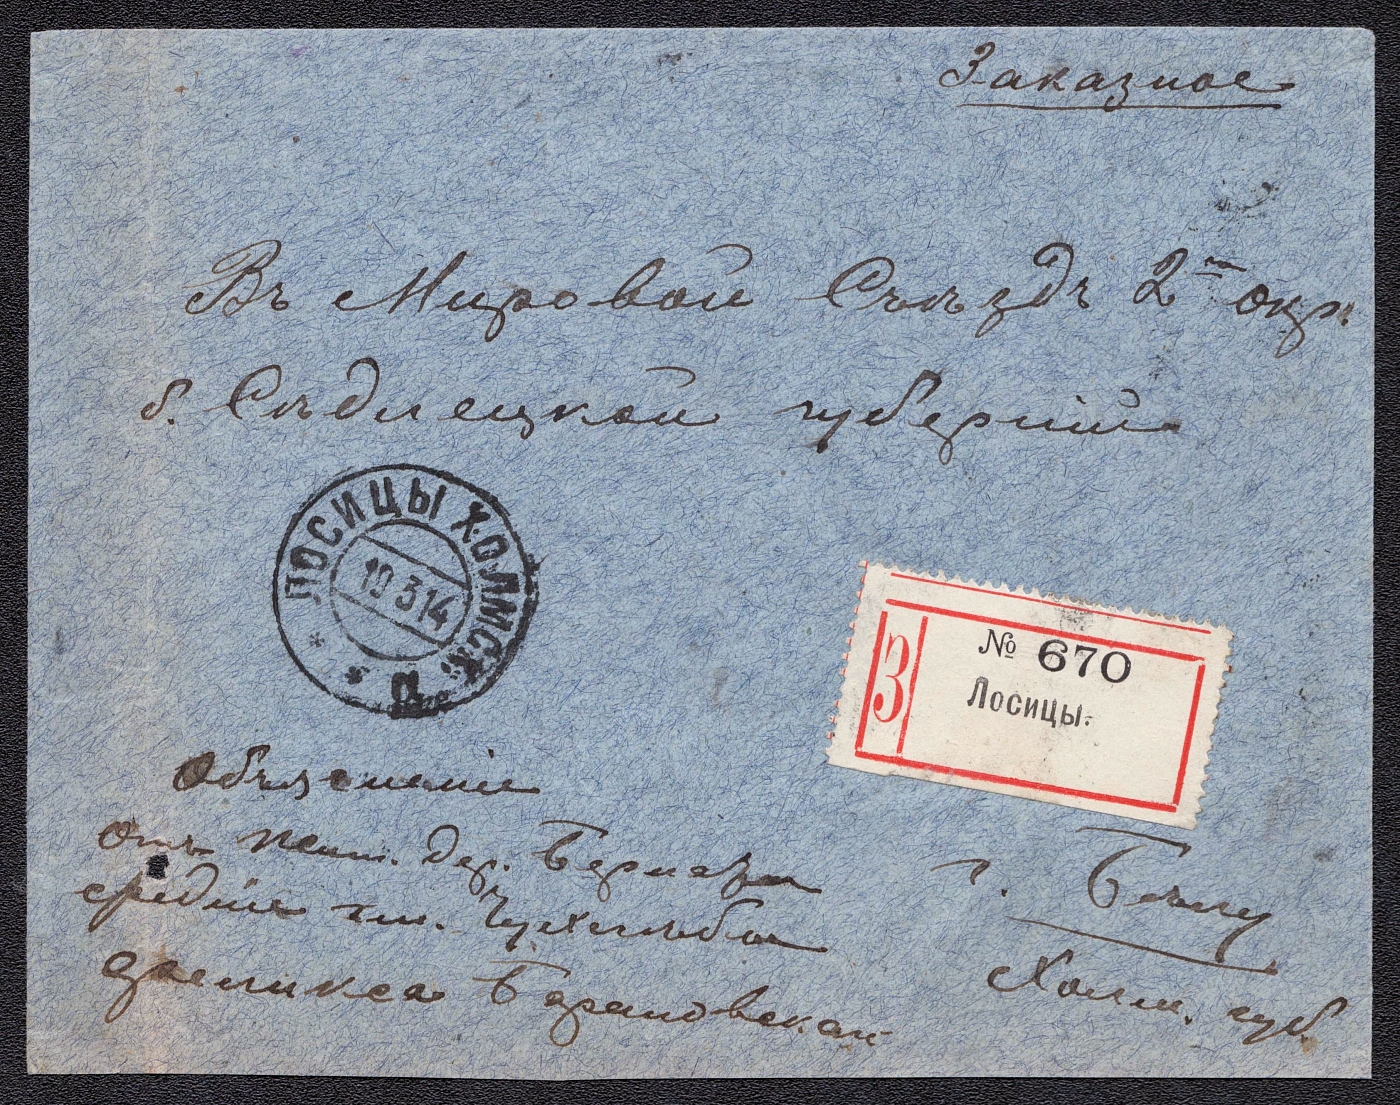 Заказное
Въ Мировой Съѣздъ 2го окр.
б. Сѣдлецкой губерніи
ЛОСИЦЫ ХОЛМСК.
19 3 14
а
З
№ 670
Лосицы.
Объясненіе
отъ жит. дер.
средніе гм.
Феликса Барановскаго
г. Бѣлу
Холм. губ.